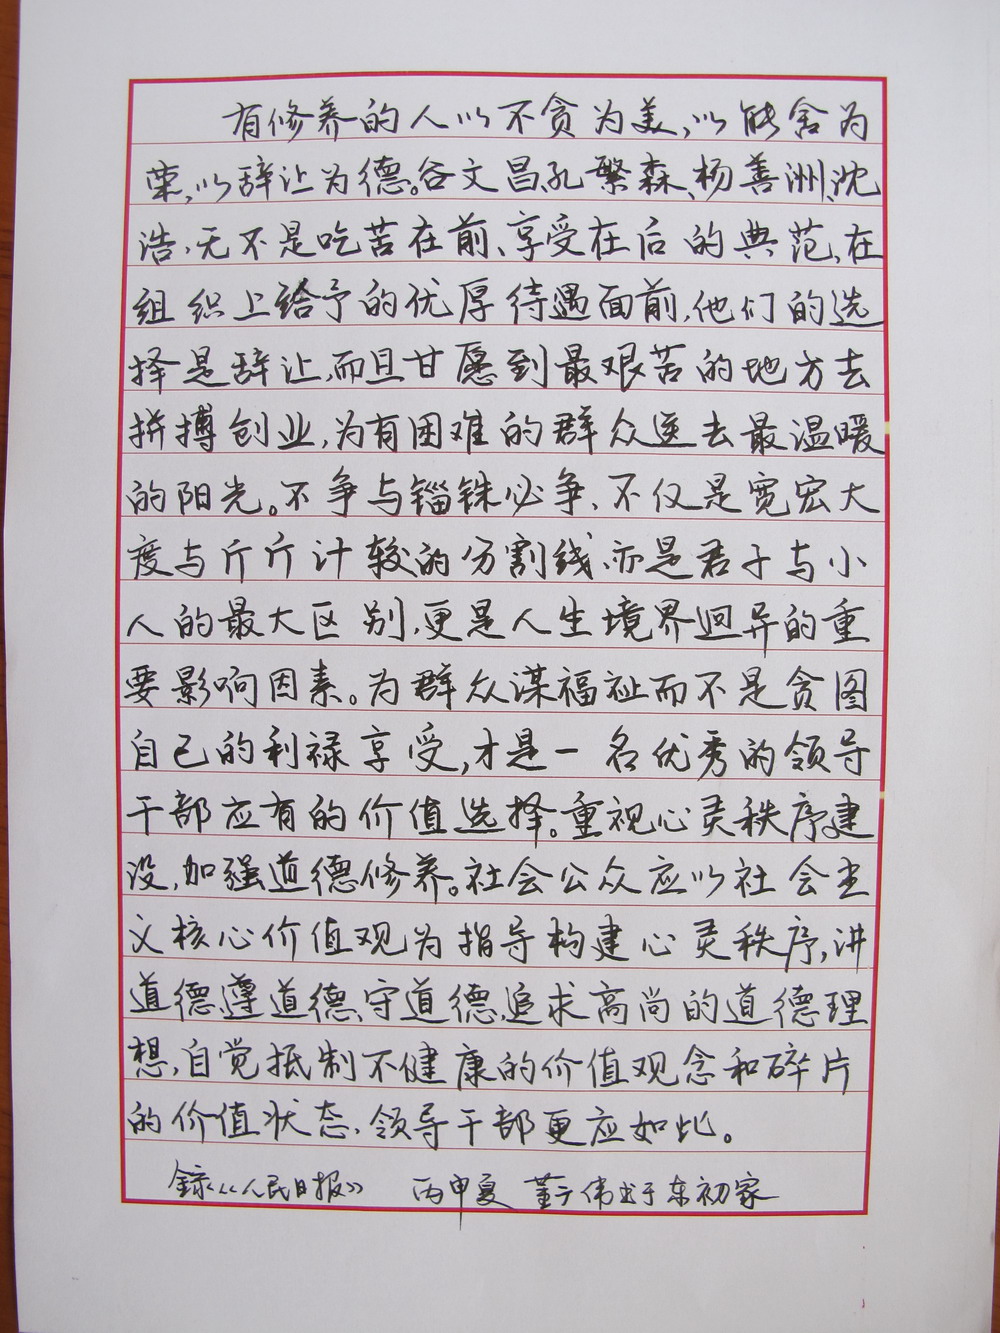 有修养的人以不贪为美,以能舍为
荣,以辞让为德。谷文昌、孔繁森、杨善洲、沈
浩,无不是吃苦在前、享受在后的典范,在
组织上给予的优厚待遇面前,他们的选
择是辞让,而且甘愿到最艰苦的地方去
拼搏创业,为有困难的群众送去最温暖
的阳光。不争与锱铢必争,不仅是宽宏大
度与斤斤计较的分割线,亦是君子与小
人的最大区别,更是人生境界迥异的重
要影响因素。为群众谋福祉而不是贪图
自己的利禄享受,才是一名优秀的领导
干部应有的价值选择。重视心灵秩序建
设,加强道德修养。社会公众应以社会主
义核心价值观为指导构建心灵秩序,讲
道德、遵道德、守道德,追求高尚的道德理
想,自觉抵制不健康的价值观念和碎片
的价值状态,领导干部更应如此。
录《人民日报》 丙申夏 董广伟书于东初家